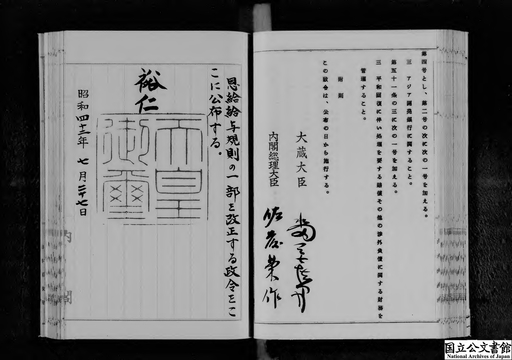 第四号とし、第二号の次に次の一号を加える。
三　アジア開発銀行に関すること。
第五十一条の三に次の一号を加える。
三　平和回復に伴い処理を要する賠償その他の渉外負債に関する財務を
管理すること。
附則
この政令は、公布の日から施行する。
大蔵大臣
内閣総理大臣　佐藤榮作
恩給給与規則の一部を改正する政令をこ
こに公布する。
裕仁
天皇
御璽
昭和四十二年七月二十七日
国立公文書館
National Archives of Japan